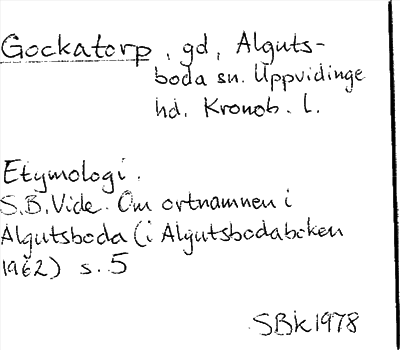 Gockatorp, gd, Alguts-
boda sn. Uppvidinge
hd. Kronob. l.
Etymologi.
S.B.Vide. Om ortnamnen i
Algutsboda (i Algutsbodaboken
1962) s. 5
SBk 1978